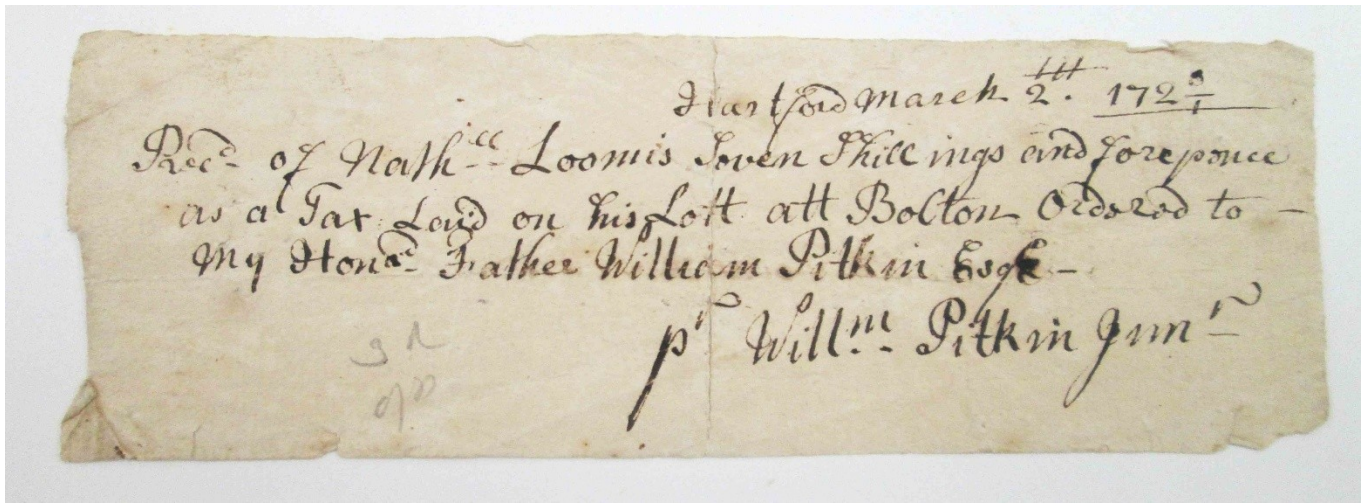 Hartford March 2. 172
Recd of Nathll Loomis Seven Shillings and forepence
as a Tax Laid on his Lott att Bolton Ordered to
My Honrd Father William Pitkin Esqr
pr Willm Pitkin Junr